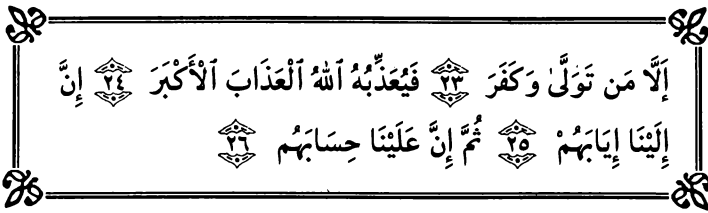 إَلَّا مَن تَوَلَّىٰ وَكَفَرَ ٢٣ فَيُعَذِّبُهُ ٱللهُ ٱلْعَذَابَ ٱلْأَكْبَرَ ٢٤ إِنَّ
إِلَيْنَا إِيَابَهُمْ ٢٥ ثُمَّ إِنَّ عَلَيْنَا حِسَابَهُم ٢٦